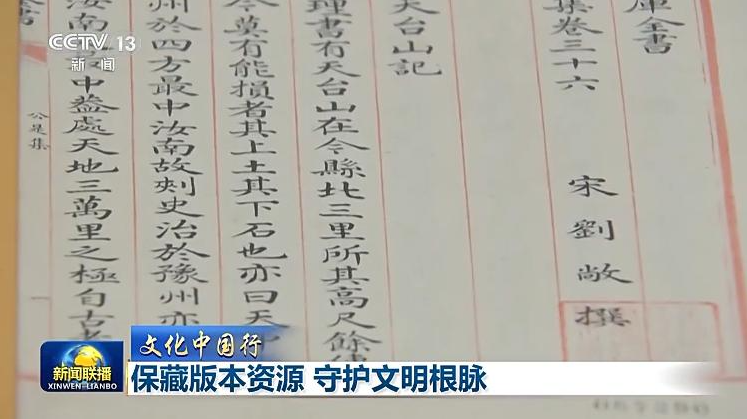 CCTV 13
新闻
庫全書
集卷三十六 宋劉敞撰
天台山記
理書有天台山在今縣北三里所其高尺餘
今莫有能損者其上土其下石也亦曰天
州於四方最中汝南故刾史治於豫州亦
汝南中蓋處天地三萬里之極自古
公是集
一
文化中国行
新闻联播
XINWEN-LIANBO
保藏版本资源 守护文明根脉